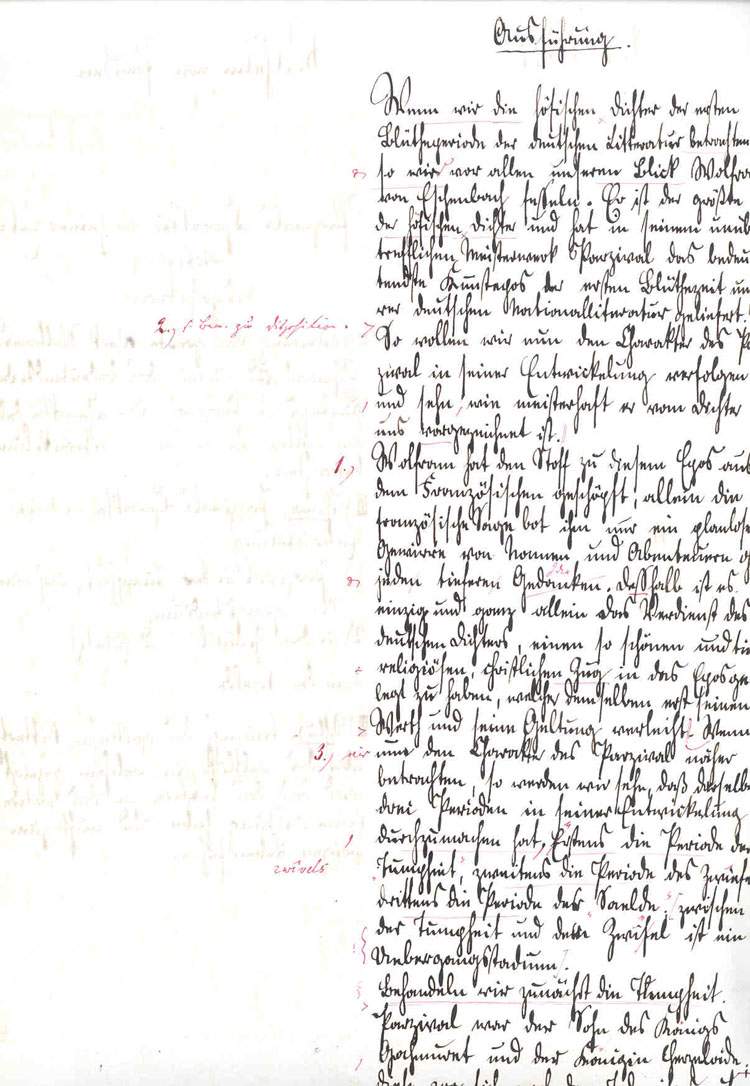 Ausführung.
Wenn wir die höfischen Dichter der ersten
Blütheperiode der deutschen Litteratur betrachten
so wird vor allen unseren Blick Wolfra
von Eschenbach fesseln. Er ist der größte
der höfischen Dichter und hat in seinem unüb
trefflichen Meisterwerk Parzival das bedeu
tendste Kunstepos der ersten Blüthezeit un
rer deutschen Nationallitteratur geliefert.
zu disposition.
So wollen wir nun den Charakter des P
zival in seiner Entwickelung verfolgen
und sehn, wie meisterhaft er vom Dichter
uns vorgezeichnet ist.
1.) Wolfram hat den Stoff zu diesem Epos aus
dem Französischen geschöpft, allein die
französische Sage bot ihm nur ein planlose
Gewirre von Namen und Abenteuern o
jeden tieferen Gedanken. Deßhalb ist es
einzig und ganz allein das Verdienst des
deutschen Dichters, einen so schönen und tie
religiösen, christlichen Zug in das Epos ge
legt zu haben, welcher demselben erst seinen
Werth und seine Geltung verleiht. Wenn
3.) wir nun den Charakter des Parzival näher
betrachten, so werden wir sehn, daß derselbe
drei Perioden in seiner Entwickelung
durchzumachen hat, Erstens die Periode der
Tumpheit, zweitens die Periode des Zwife
zwivels
drittens die Periode der Saelde; zwischen
der Tumpheit und dem Zwifel ist ein
Uebergangsstadium.
Behandeln wir zunächst die Tumpheit.
Parzival war der Sohn des Königs
Gachmuret und der Königin Herzeloide.